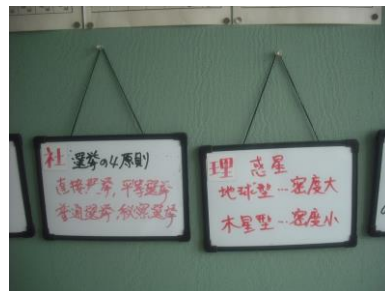 社 選挙の4原則
直接選挙, 平等選挙
普通選挙, 秘密選挙
理 惑星
地球型…密度大
木星型…密度小